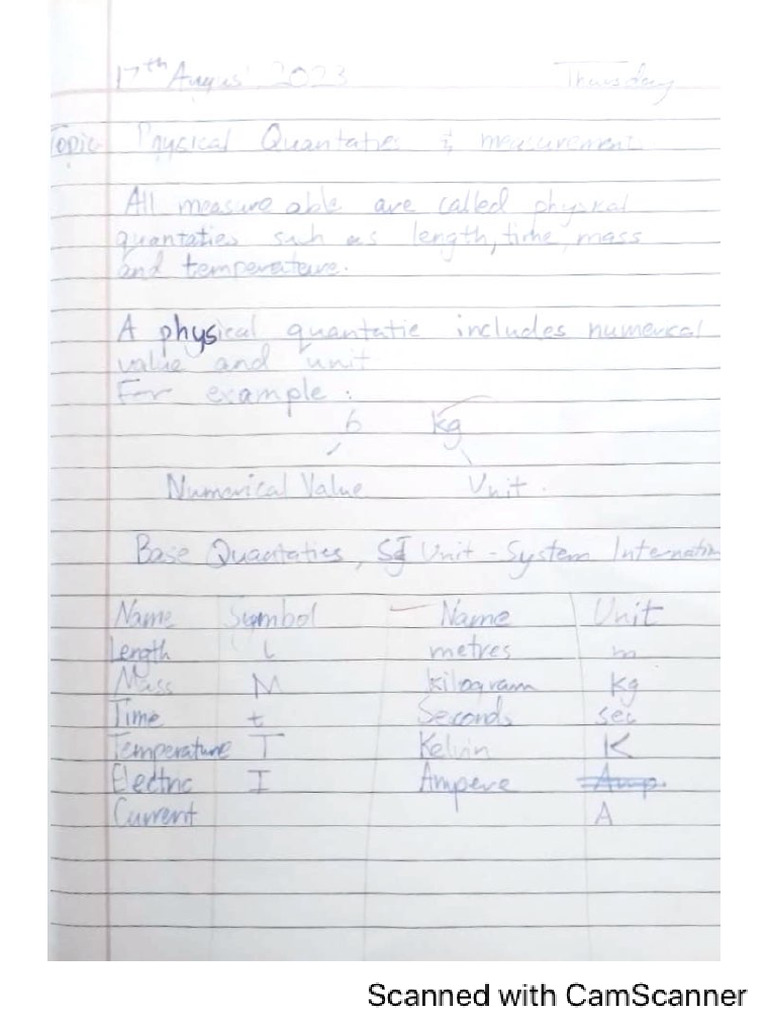 17th Augus 2023 Thursday
Topic Physical Quantaties & measurement
All measure able are called physical
quantaties such as length, time, mass
and temperature.
A physical quantatie includes numerical
value and unit
For example :
6 kg
Numerical Value Unit .
Base Quantaties, SI Unit - System Internatin
Name Symbol Name Unit
Length L metres m
Mass M kilogram kg
Time t Seconds sec
Temperature T Kelvin K
Electric I Ampere Amp.
Current A
Scanned with CamScanner